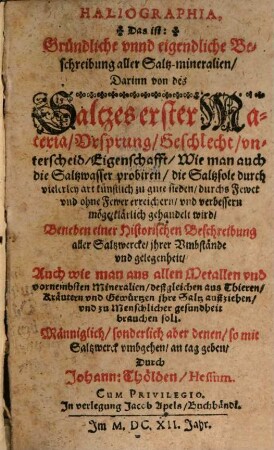 HALIOGRAPHIA,
Das ist:
Gründliche vnnd eigendliche Be-
schreibung aller Saltz-mineralien/
Darinn von des
Saltzes erster Ma-
teria/Vrsprung/Geschlecht/vn-
terscheid/Eigenschafft/Wie man auch
die Saltzwasser probiren/die Saltzsole durch
vielerley art künstlich zu gute sieden/durchs Fewer
vnd ohne Fewer erreichern/vnd verbessern
möge/klärlich gehandelt wird/
Beneben einer Historischen Beschreibung
aller Saltzwercke/jhrer Vmbstände
vnd gelegenheit/
Auch wie man aus allen Metallen vnd
vornembsten Mineralien/desgleichen aus Thieren/
Kräutern vnd Gewürtzen jhre Saltz außziehen/
vnd zu Menschlicher gesundheit
brauchen soll.
Männiglich/sonderlich aber denen/so mit
Saltzwerck vmbgehen/an tag geben/
Durch
Johann: Thölden/Hessum.
CUM PRIVILEGIO.
In verlegung Jacob Apels/Buchhändl.
Im M. DC. XII. Jahr.